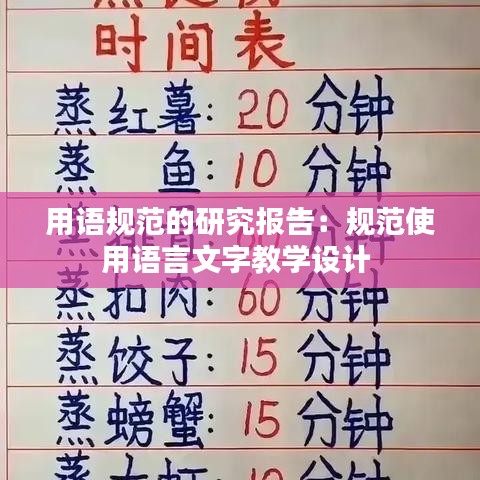 时间表
蒸红薯：20分钟
蒸 鱼：10分钟
用语规范的研究报告：规范使
用语言文字教学设计
蒸扣肉：60分钟
蒸饺子：15分钟
蒸螃蟹：15分钟